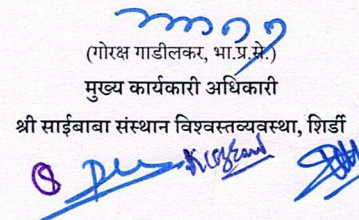 (गोरक्ष गाडीलकर, भा.प्र.से.)
मुख्य कार्यकारी अधिकारी
श्री साईबाबा संस्थान विश्वस्तव्यवस्था, शिर्डी